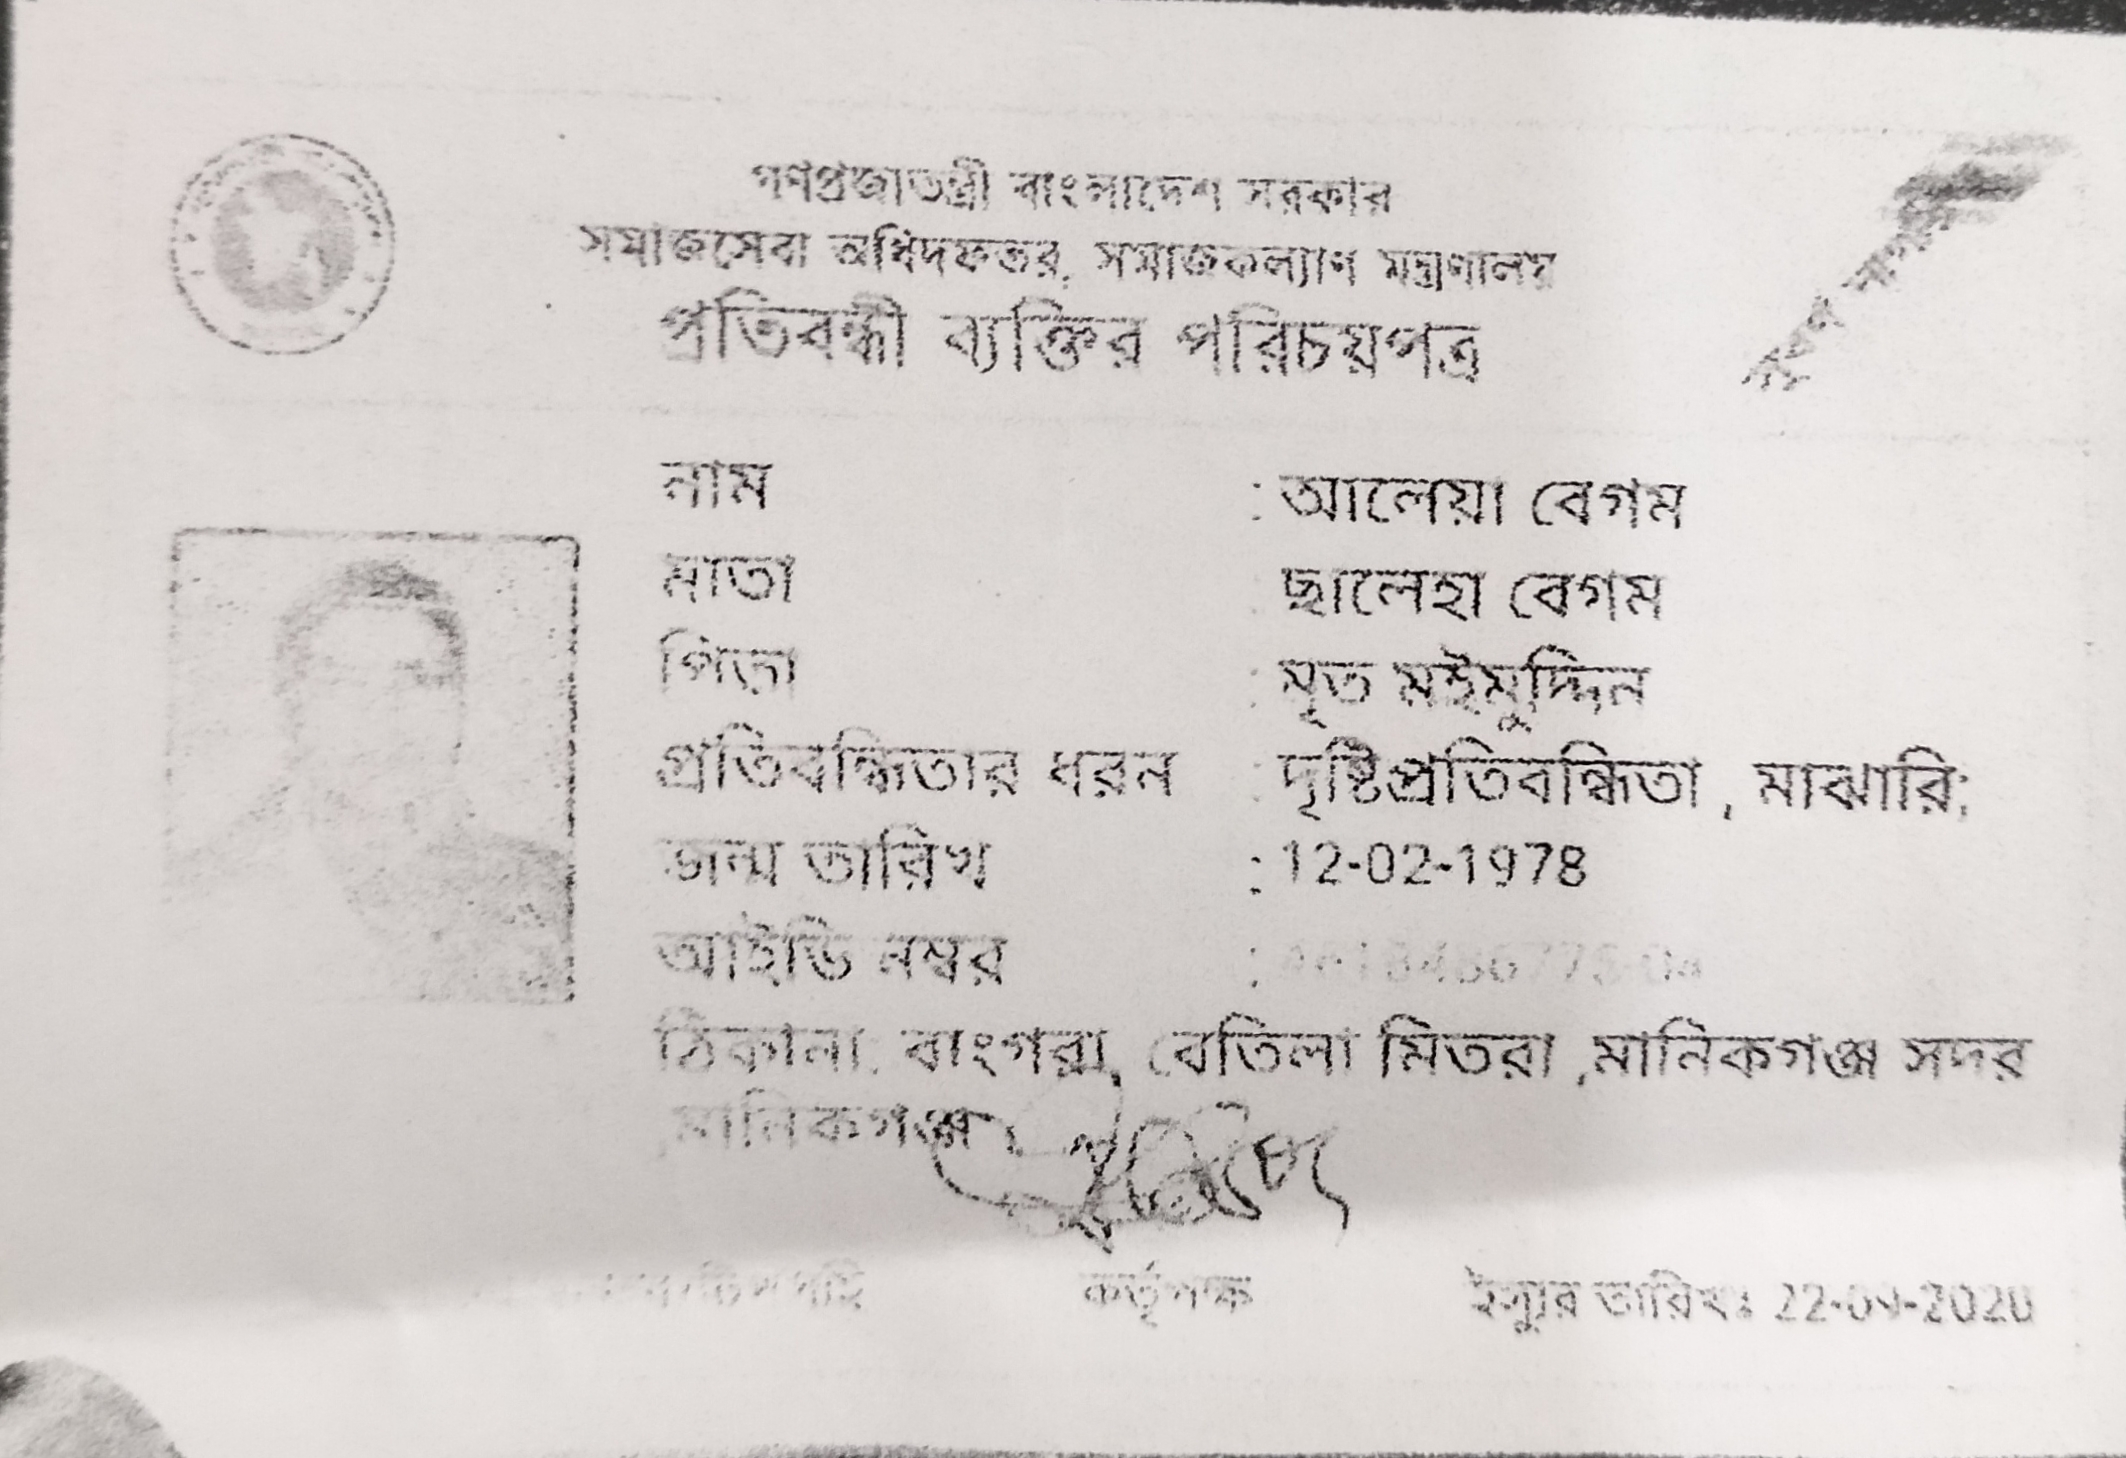 গণপ্রজাতন্ত্রী বাংলাদেশ সরকার
সমাজসেবা অধিদফতর, সমাজকল্যাণ মন্ত্রণালয়
প্রতিবন্ধী ব্যক্তির পরিচয়পত্র
সুবর্ণ নাগরিক
নাম : আলেয়া বেগম
মাতা : ছালেহা বেগম
পিতা : মৃত মইমুদ্দিন
প্রতিবন্ধিতার ধরন : দৃষ্টিপ্রতিবন্ধিতা , মাঝারি;
জন্ম তারিখ : 12-02-1978
আইডি নম্বর :
ঠিকানা: বাংগরা, বেতিলা মিতরা ,মানিকগঞ্জ সদর
,মানিকগঞ্জ
কর্তৃপক্ষ ইস্যুর তারিখঃ 22-09-2020